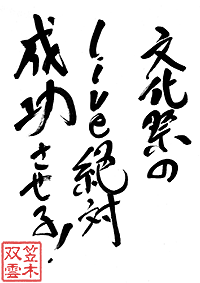 文化祭の
live絶対
成功させる!
笠木
双雲